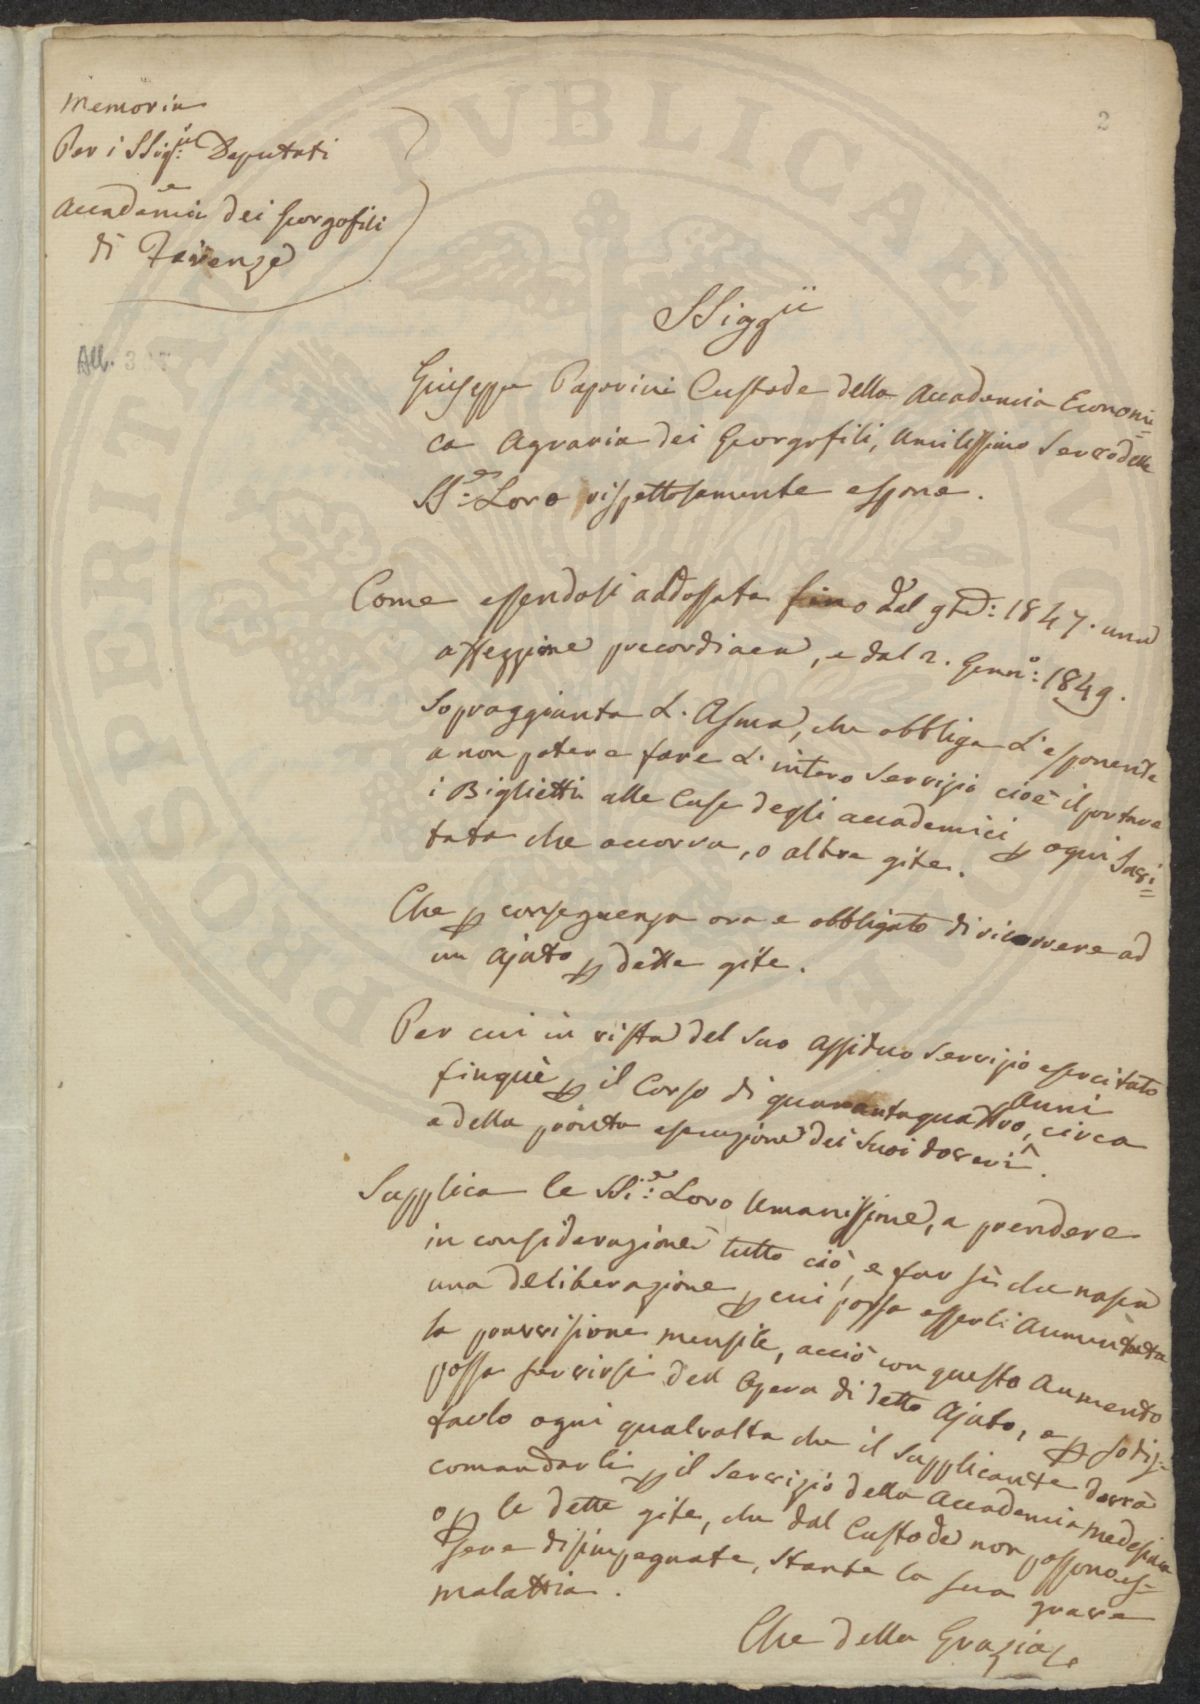 Memoria
Per i SSig:ri Deputati
Accademia dei Georgofili
di Firenze
2
All. 3
SSiggii
Giuseppe Paporini Custode della Accademia Economi=
ca Agraria dei Georgofili, Umilissimo Servo delle
SS:e Loro rispettosamente espone.
Come essendosi addossata fino dal 9bre: 1847. una
affezzione precordiaca, e dal 2. Genn:o 1849.
Sopraggiunta L'Asma, che obbliga L'esponente
a non potere fare L'intero Servizio cioè il portare
i Biglietti alle Case degli accademici p ogni Sesi=
tata che accorra, o altre gite.
Che p conseguenza ora e obbligato di ricorrere ad
un ajuto p dette gite.
Per cui in vista del Suo assiduo Servizio esercitato
finquì p il Corso di quarantaquattro, circa
Anni
e della pronta esecuzione dei Suoi doveri.
Supplica le SSi:e Loro Umanissime, a prendere
in considerazione tutto ciò, e far sì che nasca
una deliberazione p cui possa esserli Aumentata
la provvisione mensile, acciò con questo Aumento
possa servirsi dell Opera di detto Ajuto, e p sodis=
farlo ogni qualvolta che il Supplicante dovrà
comandarli p il Servizio della Accademia Medesima
o p le dette gite, che dal Custode non possono es=
sere disimpegnate, Stante la sua grave
malattia.
Che della Grazia